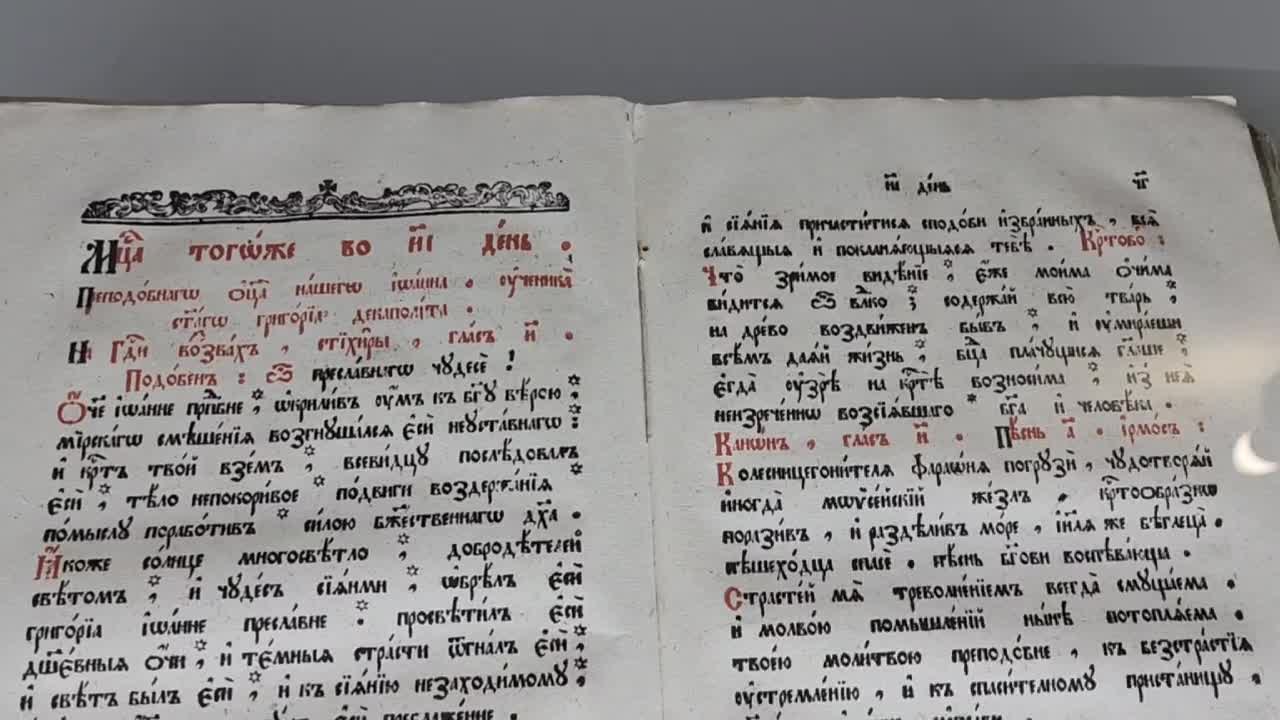 Мц҃а тогѡ́же во и҃і де́нь .
Преподо́бнагѡ ѻ҆ц҃а̀ на́шегѡ і҆ѡа́нна . ᲂу҆ченика̀
ст҃а́гѡ григо́рїа декаполі́та .
На Гдⷭ҇и воззва́хъ , стїхи̑ры , гла́съ и҃ .
Подо́бенъ : Ѽ пресла́внагѡ чꙋдесѐ !
Ѻ҆́ч҃е і҆ѡа́нне прпⷣбне , ѡ҆крили́въ ᲂу҆́мъ къ бг҃ꙋ вѣ́рою ,
мїрска́гѡ смѣше́нїѧ возгнꙋша́лсѧ є҆сѝ неꙋста́внагѡ :
и҆ крⷭ҇тъ тво́й взе́мъ , всеви́дцꙋ послѣ́довалъ
є҆сѝ , тѣ́ло непокори́вое по́двиги воздержа́нїѧ
по́мыслꙋ порабо́тивъ си́лою бж҃е́ственнагѡ дх҃а .
Ꙗ҆́коже со́лнце многосвѣ́тло , добродѣ́телей
свѣ́томъ , и҆ чꙋде́съ сїѧ́ньми , ѡ҆брѣ́лъ є҆сѝ
григо́рїа і҆ѡа́нне пресла́вне . просвѣти́лъ є҆сѝ
дꙋше́вныѧ ѻ҆́чи , и҆ те́мныѧ стра́сти ѿгна́лъ є҆сѝ ,
и҆ свѣ́тъ бы́лъ є҆сѝ , и҆ къ сїѧ́нїю незаходи́момꙋ ,
є҆сѝ пребл҃же́нне
и҃і де́нь чг҃
и҆ сїѧ́нїѧ причасти́тисѧ сподо́би и҆збра́нныхъ , всѧ̑
сла́вѧщыѧ и҆ покланѧ́ющыѧсѧ тебѣ̀ . Крⷭ҇тобо :
Что̀ зри́мое видѣ́нїе , є҆́же мои́ма ѻ҆чи́ма
ви́дитсѧ ѽ влⷣко ; содержа́й всю̀ тва́рь ,
на дре́во воздви́женъ бы́въ , и҆ ᲂу҆мира́еши
всѣ̑мъ даѧ́й жи́знь , бц҃а пла́чꙋщисѧ гл҃аше ,
є҆гда̀ ᲂу҆зрѣ̀ на крⷭ҇тѣ̀ возноси́ма , и҆з̾ неѧ̀
неизрече́ннѡ возсїѧ́вшаго бг҃а и҆ человѣ́ка .
Канѡ́нъ , гла́съ и҃ . Пѣ́снь а҃ . і҆рмо́съ :
Колесницегони́телѧ фараѡ́нѧ погрꙋзѝ , чꙋдотворѧ́й
и҆ногда̀ мѡѷсе́йскїй же́злъ , крⷭ҇тоѻбра́знѡ
порази́въ , и҆ раздѣли́въ мо́ре , і҆и҃лѧ же бѣглеца̀ .
пѣшехо́дца спасѐ . пѣ́снь бг҃ови воспѣва́юща .
Страсте́й мѧ̀ треволне́нїемъ всегда̀ смꙋща́ема
и҆ молво́ю помышле́нїй ны́нѣ потоплѧ́ема .
твое́ю моли́твою преподо́бне , къ безстра́стїѧ
ᲂу҆стремле́нїю , и҆ къ спаси́телномꙋ приста́нищꙋ ,